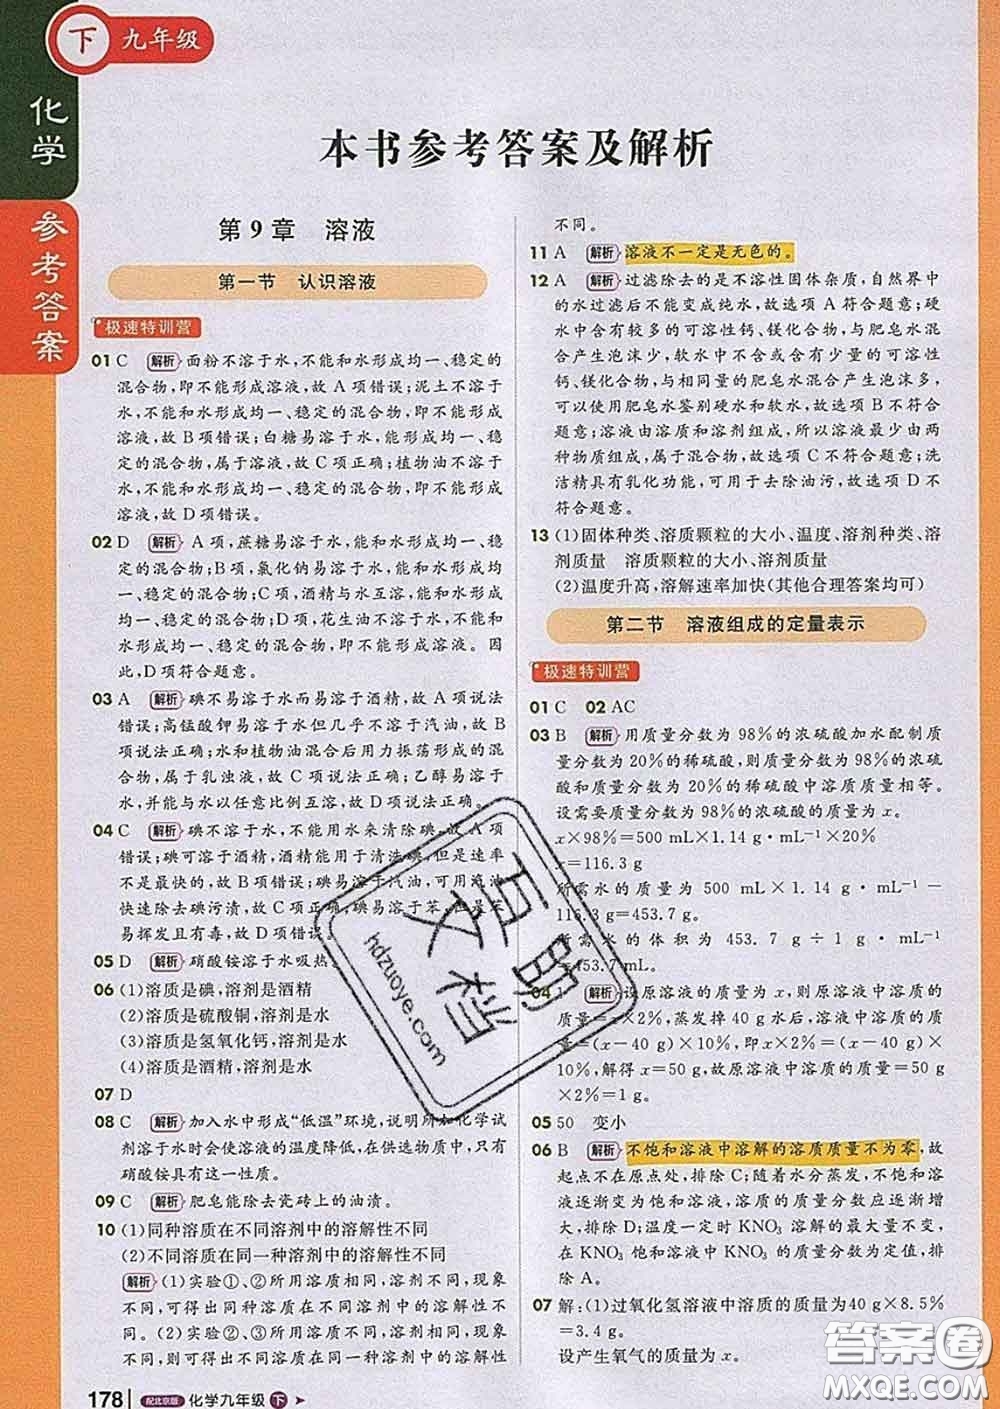 下 九年级
化学
参考答案
本书参考答案及解析
第9章 溶液
第一节 认识溶液
极速特训营
01 C 解析 面粉不溶于水,不能和水形成均一、稳定的
混合物,即不能形成溶液,故A项错误;泥土不溶于
水,不能和水形成均一、稳定的混合物,即不能形成
溶液,故B项错误;白糖易溶于水,能和水形成均一、稳
定的混合物,属于溶液,故C项正确;植物油不溶于
水,不能和水形成均一、稳定的混合物,即不能形成溶
液,故D项错误。
02 D 解析 A项,蔗糖易溶于水,能形成均一、稳定的
混合物;B项,氯化钠易溶于水,能形成均一、稳定的
混合物;C项,酒精与水互溶,能形成均一、稳定的混
合物;D项,花生油不溶于水,与水混合后不能形成均
一、稳定的混合物,不能与水混合形成溶液。因
此,D项符合题意。
03 A 解析 碘不易溶于水而易溶于酒精,故A项说法
错误;高锰酸钾易溶于水但几乎不溶于汽油,故B
项说法正确;水和植物油混合后用力振荡形成的混
合物,属于乳浊液,故C项说法正确;乙醇易溶于
水,并能与水以任意比例互溶,故D项说法正确。
04 C 解析 碘不溶于水,不能用水来清除碘,故A项
错误;碘可溶于酒精,酒精能用于清洗碘,但是速率
不是最快的,故B项错误;碘易溶于汽油,可用汽油
快速除去碘污渍,故C项正确;碘易溶于苯,但是苯
易挥发且有毒,故D项错误。
05 D 解析 硝酸铵溶于水吸热。
06 (1)溶质是碘,溶剂是酒精
(2)溶质是硫酸铜,溶剂是水
(3)溶质是氢氧化钙,溶剂是水
(4)溶质是酒精,溶剂是水
07 D
08 C 解析 加入水中形成“低温”环境,说明所加化学试
剂溶于水时会使溶液的温度降低,在供选物质中,只有
硝酸铵具有这一性质。
09 C 解析 肥皂能除去瓷砖上的油渍。
10 (1)同种溶质在不同溶剂中的溶解性不同
(2)不同溶质在同一种溶剂中的溶解性不同
解析 (1)实验①、②所用溶质相同,溶剂不同,现象
不同,可得出同种溶质在不同溶剂中的溶解性不
同。(2)实验②、③所用溶质不同,溶剂相同,现象
不同,可得出不同溶质在同一种溶剂中的溶解性
不同。
11 A 解析 溶液不一定是无色的。
12 A 解析 过滤除去的是不溶性固体杂质,自然界中
的水过滤后不能变成纯水,故选项A符合题意;硬
水中含有较多的可溶性钙、镁化合物,与肥皂水混
合产生泡沫少,软水中不含或含有少量的可溶性
钙、镁化合物,与相同量的肥皂水混合产生泡沫多,
可以使用肥皂水鉴别硬水和软水,故选项B不符合
题意;溶液由溶质和溶剂组成,所以溶液最少由两
种物质组成,故选项C不符合题意;洗
洁精具有乳化功能,可用于去除油污,故选项D不
符合题意。
13 (1)固体种类、溶质颗粒的大小、温度、溶剂种类、溶
剂质量 溶质颗粒的大小、溶剂质量
(2)温度升高,溶解速率加快(其他合理答案均可)
第二节 溶液组成的定量表示
极速特训营
01 C 02 AC
03 B 解析 用质量分数为98%的浓硫酸加水配制质
量分数为20%的稀硫酸,则质量分数为98%的浓硫
酸和质量分数为20%的稀硫酸中溶质质量相等。
设需要质量分数为98%的浓硫酸的质量为x。
x×98%=500 mL×1.14 g·mL⁻¹×20%
x=116.3 g
所需水的质量为 500 mL×1.14 g·mL⁻¹-
116.3 g=453.7 g。
所需水的体积为 453.7 g÷1 g·mL⁻¹
=453.7 mL。
04 1 解析 设原溶液的质量为x,则原溶液中溶质的质
量=x×2%,蒸发掉40 g水后,溶液中溶质的质
量=(x-40 g)×10%,即x×2%=(x-40 g)
×10%,解得x=50 g,故原溶液中溶质的质量=50 g
×2%=1 g。
05 50 变小
06 B 解析 不饱和溶液中溶解的溶质质量不为零,故
起点不在原点处,排除C;随着水分蒸发,不饱和溶
液逐渐变为饱和溶液,溶质的质量分数应逐渐增
大,排除D;温度一定时KNO₃溶解的最大量不变,
在KNO₃饱和溶液中溶质的质量分数为定值,排
除A。
07 解:(1)过氧化氢溶液中溶质的质量为40 g×8.5%
=3.4 g。
设产生氧气的质量为x。
178 配北京版 化学九年级 下
百郎文档
hdzuoye.com
答案圈
MXQE.COM